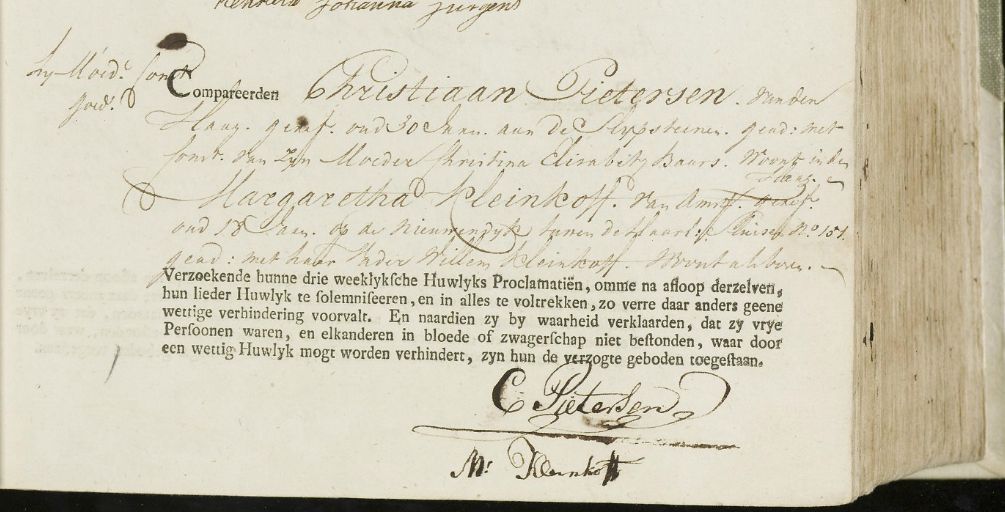 Johanna Jurgens
Compareerden Christiaan Pietersen. van den
Haag. geref. oud 30 Jaar. aan de Slypsteenen. gead: met
Const. van zyn Moeder Christina Elisabeth Baars. Woont in den
Haag.
Margaretha Kleinkoff. van Amst. geref.
oud 18 Jaar. op de Nieuwendyk tussen de Haarl: Sluisen No 151.
gead: met haar Vader Willem Kleinkoff. Woont als boven.
Verzoekende hunne drie weeklykſche Huwlyks Proclamatiën, omme na afloop derzelven,
hun lieder Huwlyk te ſolemniſeeren, en in alles te voltrekken, zo verre daar anders geene
wettige verhindering voorvalt. En naardien zy by waarheid verklaarden, dat zy vrye
Perſoonen waren, en elkanderen in bloede of zwagerſchap niet beſtonden, waar door
een wettig Huwlyk mogt worden verhindert, zyn hun de verzogte geboden toegeſtaan.
C Pietersen
M: Kleinkoff